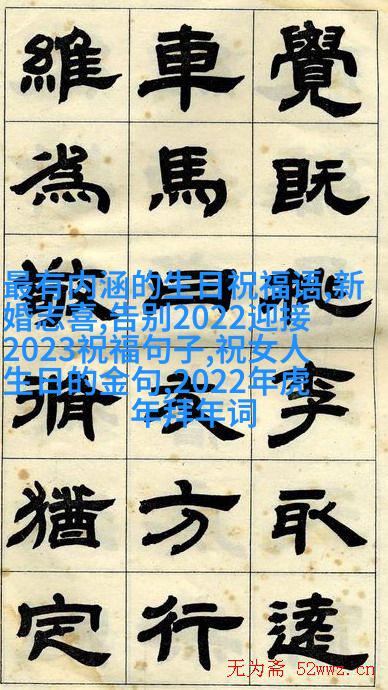 覺既李取達
車馬亥方行
維為脩猶定
最有内涵的生日祝福语,新
婚志喜,告别2022迎接
2023祝福句子,祝女人
生日的金句,2022年虎
年拜年词
无为斋 52wwz.cn